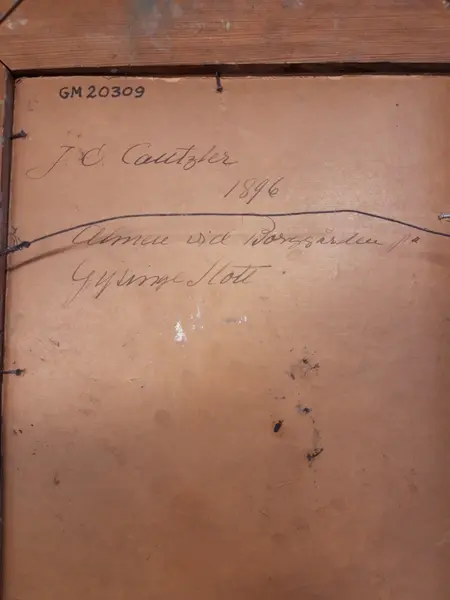 GM20309
J. C. Cantzler
1896
Almen vid Borggården på
Gysinge Slott